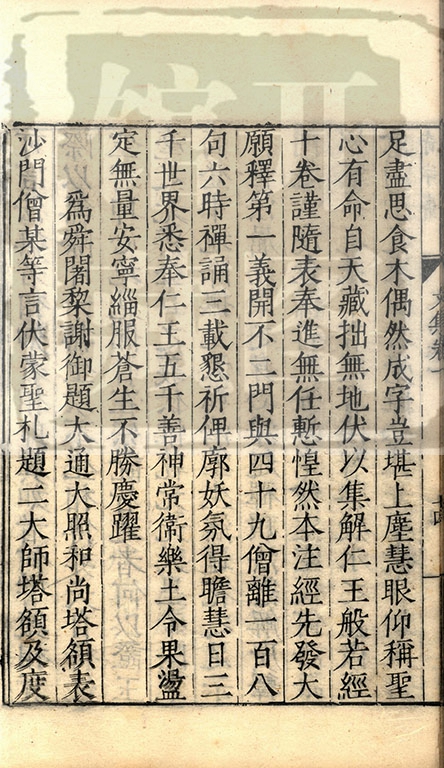 足盡思食木偶然成字豈堪上塵慧眼仰稱聖
心有命自天藏拙無地伏以集解仁王般若經
十卷謹隨表奉進無任慙惶然本注經先發大
願釋第一義開不二門與四十九僧離一百八
句六時禪誦三載懇祈俾廓妖氛得瞻慧日三
千世界悉奉仁王五千善神常衛樂土令果盪
定無量安寧緇服蒼生不勝慶躍
爲舜闍黎謝御題大通大照和尚塔額表
沙門僧某等言伏蒙聖札題二大師塔額及度